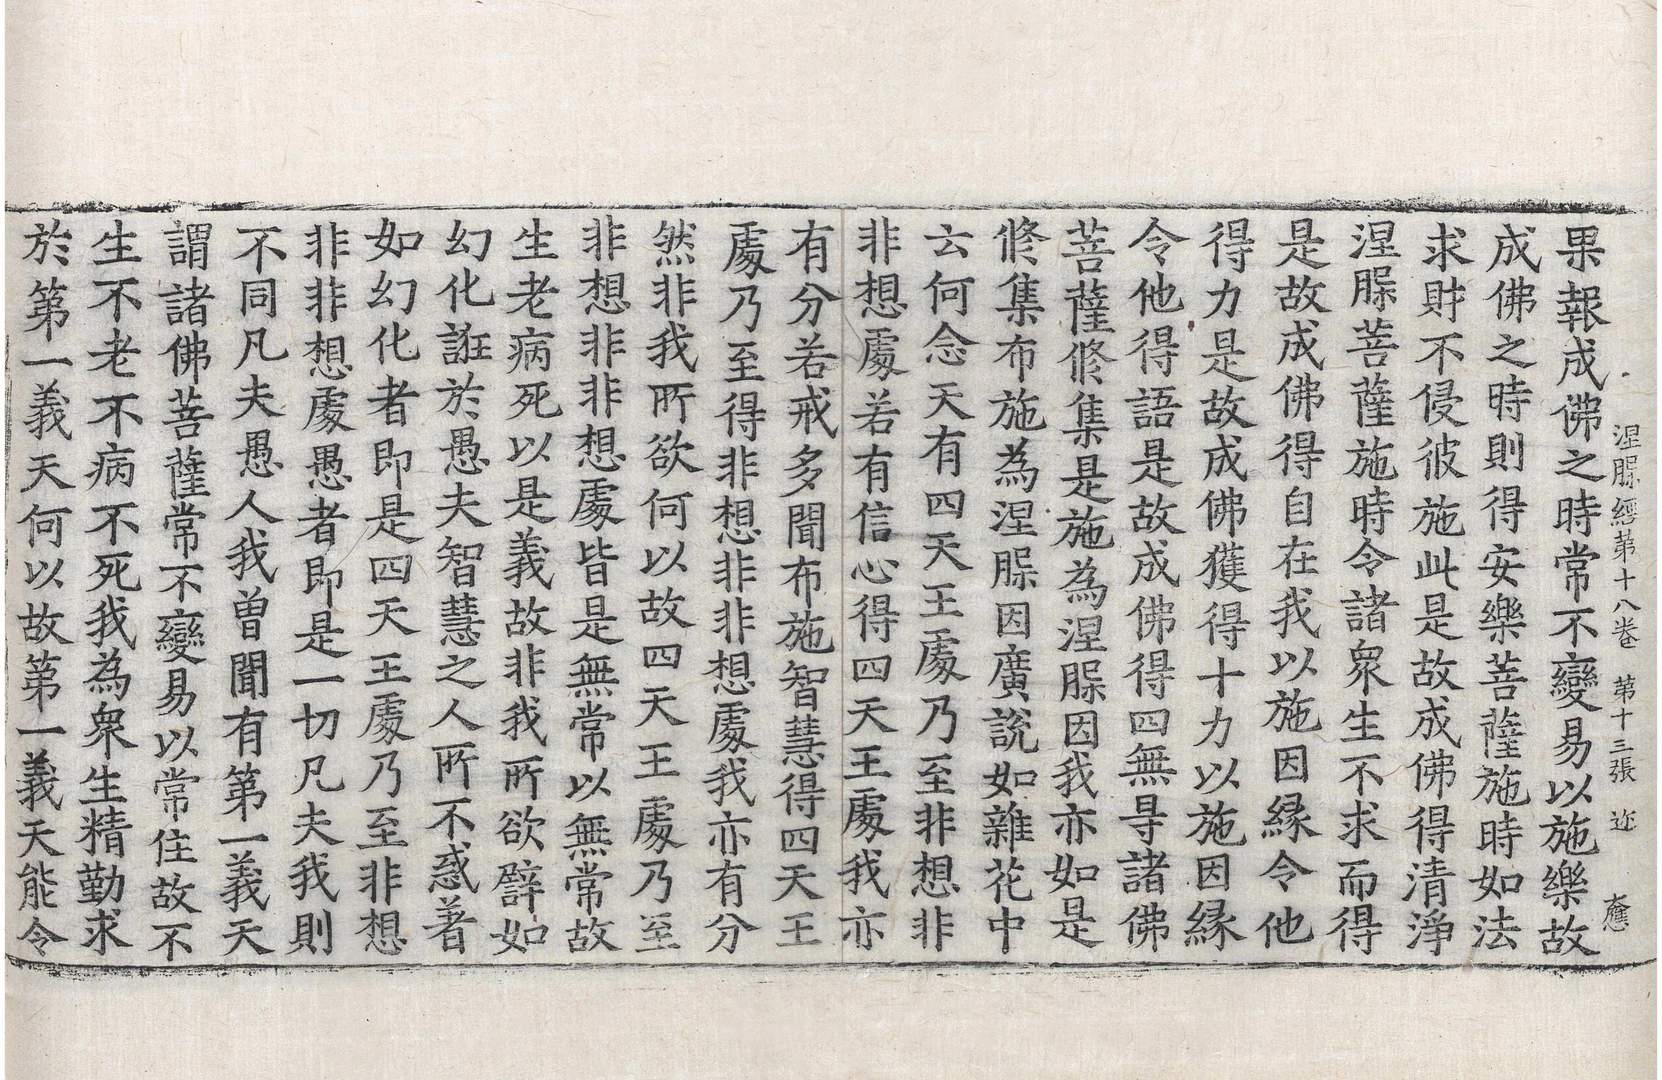 涅槃經第十八卷 第十三張 迩 應
果報成佛之時常不變易以施樂故
成佛之時則得安樂菩薩施時如法
求財不侵彼施此是故成佛得清淨
涅槃菩薩施時令諸衆生不求而得
是故成佛得自在我以施因緣令他
得力是故成佛獲得十力以施因緣
令他得語是故成佛得四無㝵諸佛
菩薩俻集是施為涅槃因我亦如是
俻集布施為涅槃因廣說如雜花中
云何念天有四天王處乃至非想非
非想處若有信心得四天王處我亦
有分若戒多聞布施智慧得四天王
處乃至得非想非非想處我亦有分
然非我所欲何以故四天王處乃至
非想非非想處皆是無常以無常故
生老病死以是義故非我所欲譬如
幻化誑於愚夫智慧之人所不惑著
如幻化者即是四天王處乃至非想
非非想處愚者即是一切凡夫我則
不同凡夫愚人我曾聞有第一義天
謂諸佛菩薩常不變易以常住故不
生不老不病不死我為衆生精勤求
於第一義天何以故第一義天能令